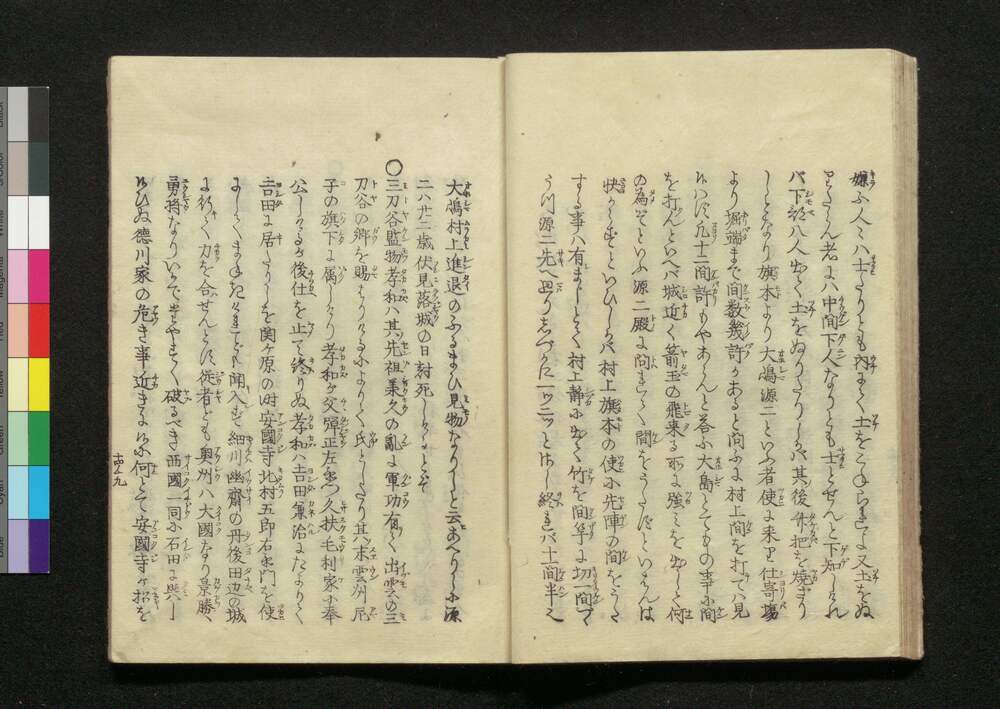 嫌ふ人ミハ士たりとも内まてく土をこねられよ又土をぬ
りたらん者ハ中間下人なりとも士とせんと下知しられ
バ下部八人出て土をぬりたりしかバ其後竹把を焼さり
しとなり旗本より大嶋源二といふ者使に来り仕寄場
より堀端まで間数幾許かあると問ふに村上間を打てハ見
ねハ凡九十二間許もやあらんと答ふ大島とてもの事に間
を打んといへバ城近く箭玉の飛来る所に強ミを出して何
の為そといふ源二殿に問れて間をうたすといはんは
快からすといひしかバ村上旗本の使に先陣の間をうた
する事ハ有ましとて村上静に出て竹を間竿に切一間て
うハ源二先へ廻りしづかに一ツ二ツとよし終れバ十間半也
大嶋村上進退のふるまひ見物なりしと云あへりしに源
二ハ廿二歳伏見落城の日討死しけるとぞ
〇三刀谷監物孝和ハ其先祖承久の亂に軍功有て出雲の三
刀谷の郷を賜はりけるによりて氏としたり其ノ末雲州尼
子の旗下に属しけり孝和が父彈正左衛門久扶毛利家に奉
公しけるが後仕を止て終りぬ孝和ハ吉田兼治にたよりて
吉田に居たりしを関ヶ原の時安國寺北村五郎右衛門を使
にしてまねきけれども聞入ず細川幽齋の丹後田辺の城
に行て力を合せんとす従者ども奥州ハ大國なり景勝ハ
勇将なりいかでたやすく破るべき西國一同に石田に與し
給ひぬ徳川家の危き事近きに候何とて安國寺が招を
十四ノ九